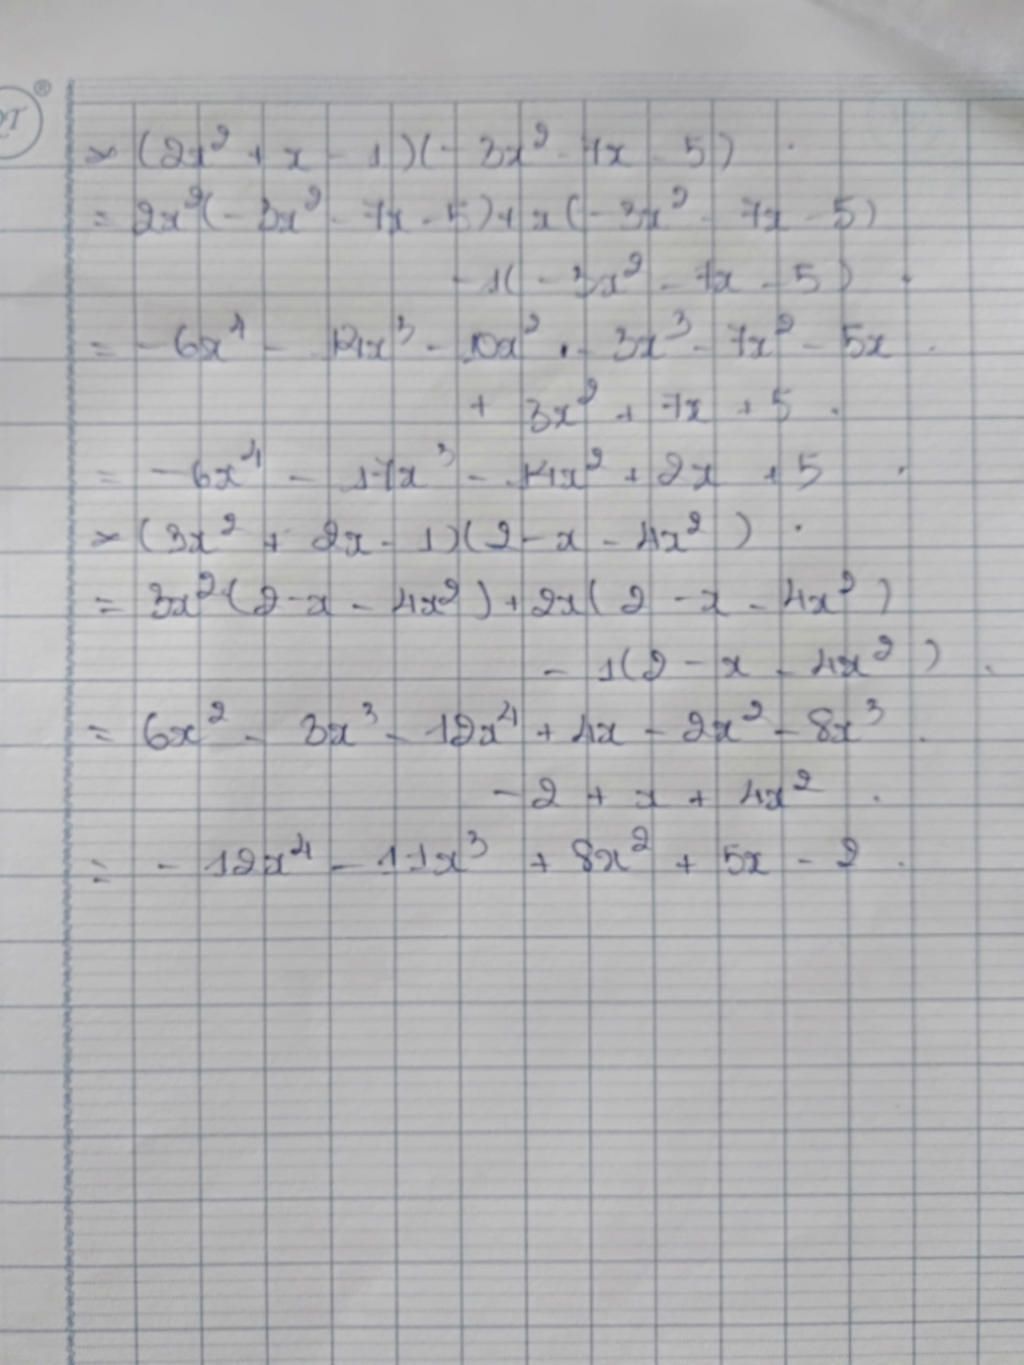 > (2x² + x - 1)(- 3x² - 7x - 5) .
= 2x²(- 3x² - 7x - 5) + x(- 3x² - 7x - 5)
- 1( - 3x² - 7x - 5) .
= - 6x⁴ - 14x³ - 10x² - 3x³ - 7x² - 5x .
+ 3x² + 7x + 5 .
= - 6x⁴ - 17x³ - 14x² + 2x + 5 .
> (3x² + 2x - 1)(2 - x - 4x²) .
= 3x²(2 - x - 4x²) + 2x(2 - x - 4x²)
- 1(2 - x - 4x²) .
= 6x² - 3x³ - 12x⁴ + 4x - 2x² - 8x³ .
- 2 + x + 4x² .
= - 12x⁴ - 11x³ + 8x² + 5x - 2 .